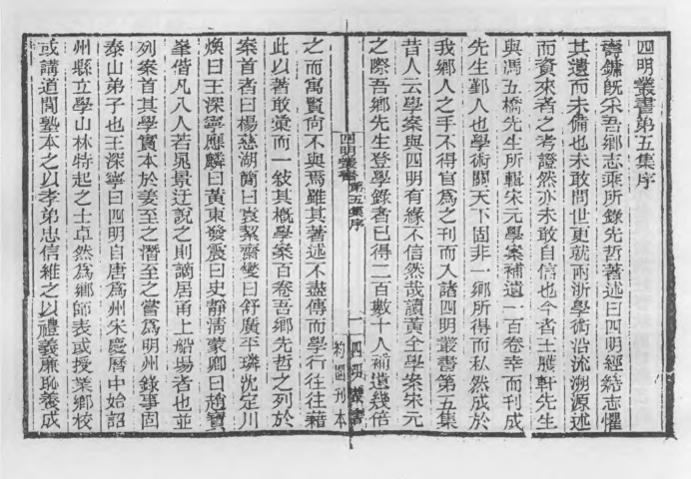 四明叢書第五集序
壽鏞既采吾鄉志乘所錄先哲著述曰四明經籍志懼
其遺而未備也未敢問世更就兩浙學術沿流溯源述
而資來者之考證然亦未敢自信也今者王䕶軒先生
與馮五橋先生所輯宋元學案補遺一百卷幸而刊成
先生鄞人也學術關天下固非一鄉所得而私然成於
我鄉人之手不得官為之刊而入諸四明叢書第五集
昔人云學案與四明有緣不信然哉讀黃全學案宋元
之際吾鄉先生登學錄者已得二百數十人補遺幾倍
四明叢書
第五集序
一
四明叢書
約園刊本
之而寓賢尙不與焉雖其著述不盡傳而學行往往藉
此以著敢彙而一敍其槪學案百卷吾鄉先哲之列於
案首者曰楊慈湖簡曰袁絜齋燮曰舒廣平璘沈定川
煥曰王深寧應麟曰黃東發震曰史靜淸蒙卿曰趙寶
峯偕凡八人若晁景迂說之則謫居甬上船場者也並
列案首其學實本於姜至之潛至之嘗為明州錄事固
泰山弟子也王深寧曰四明自唐為州宋慶曆中始詔
州縣立學山林特起之士卓然為鄉師表或授業鄉校
或講道閭塾本之以孝弟忠信維之以禮義廉恥養成